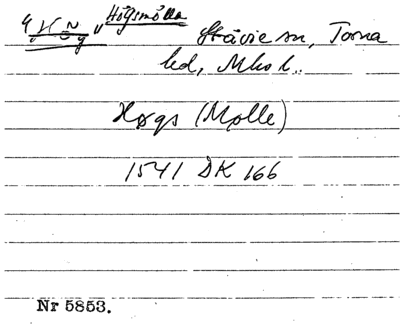 Högsmölla Stävie sn, Torna
hd, Mhs l.
Høgs (Mølle)
1541 DK 166
Nr 5853.